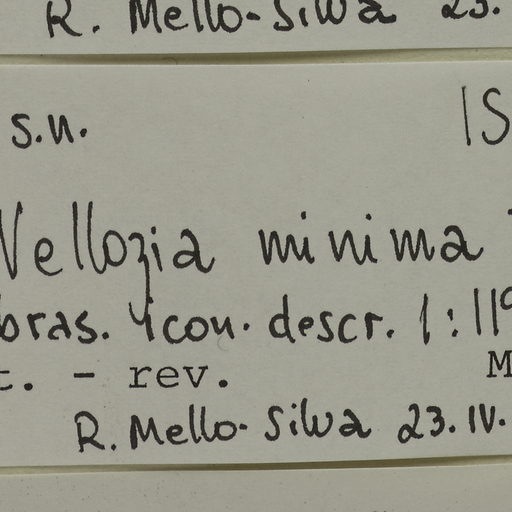 R. Mello-Silva 23.
s.n. IS
Vellozia minima
bras. Icon. descr. 1:119
t. - rev. M
R. Mello-Silva 23.IV.